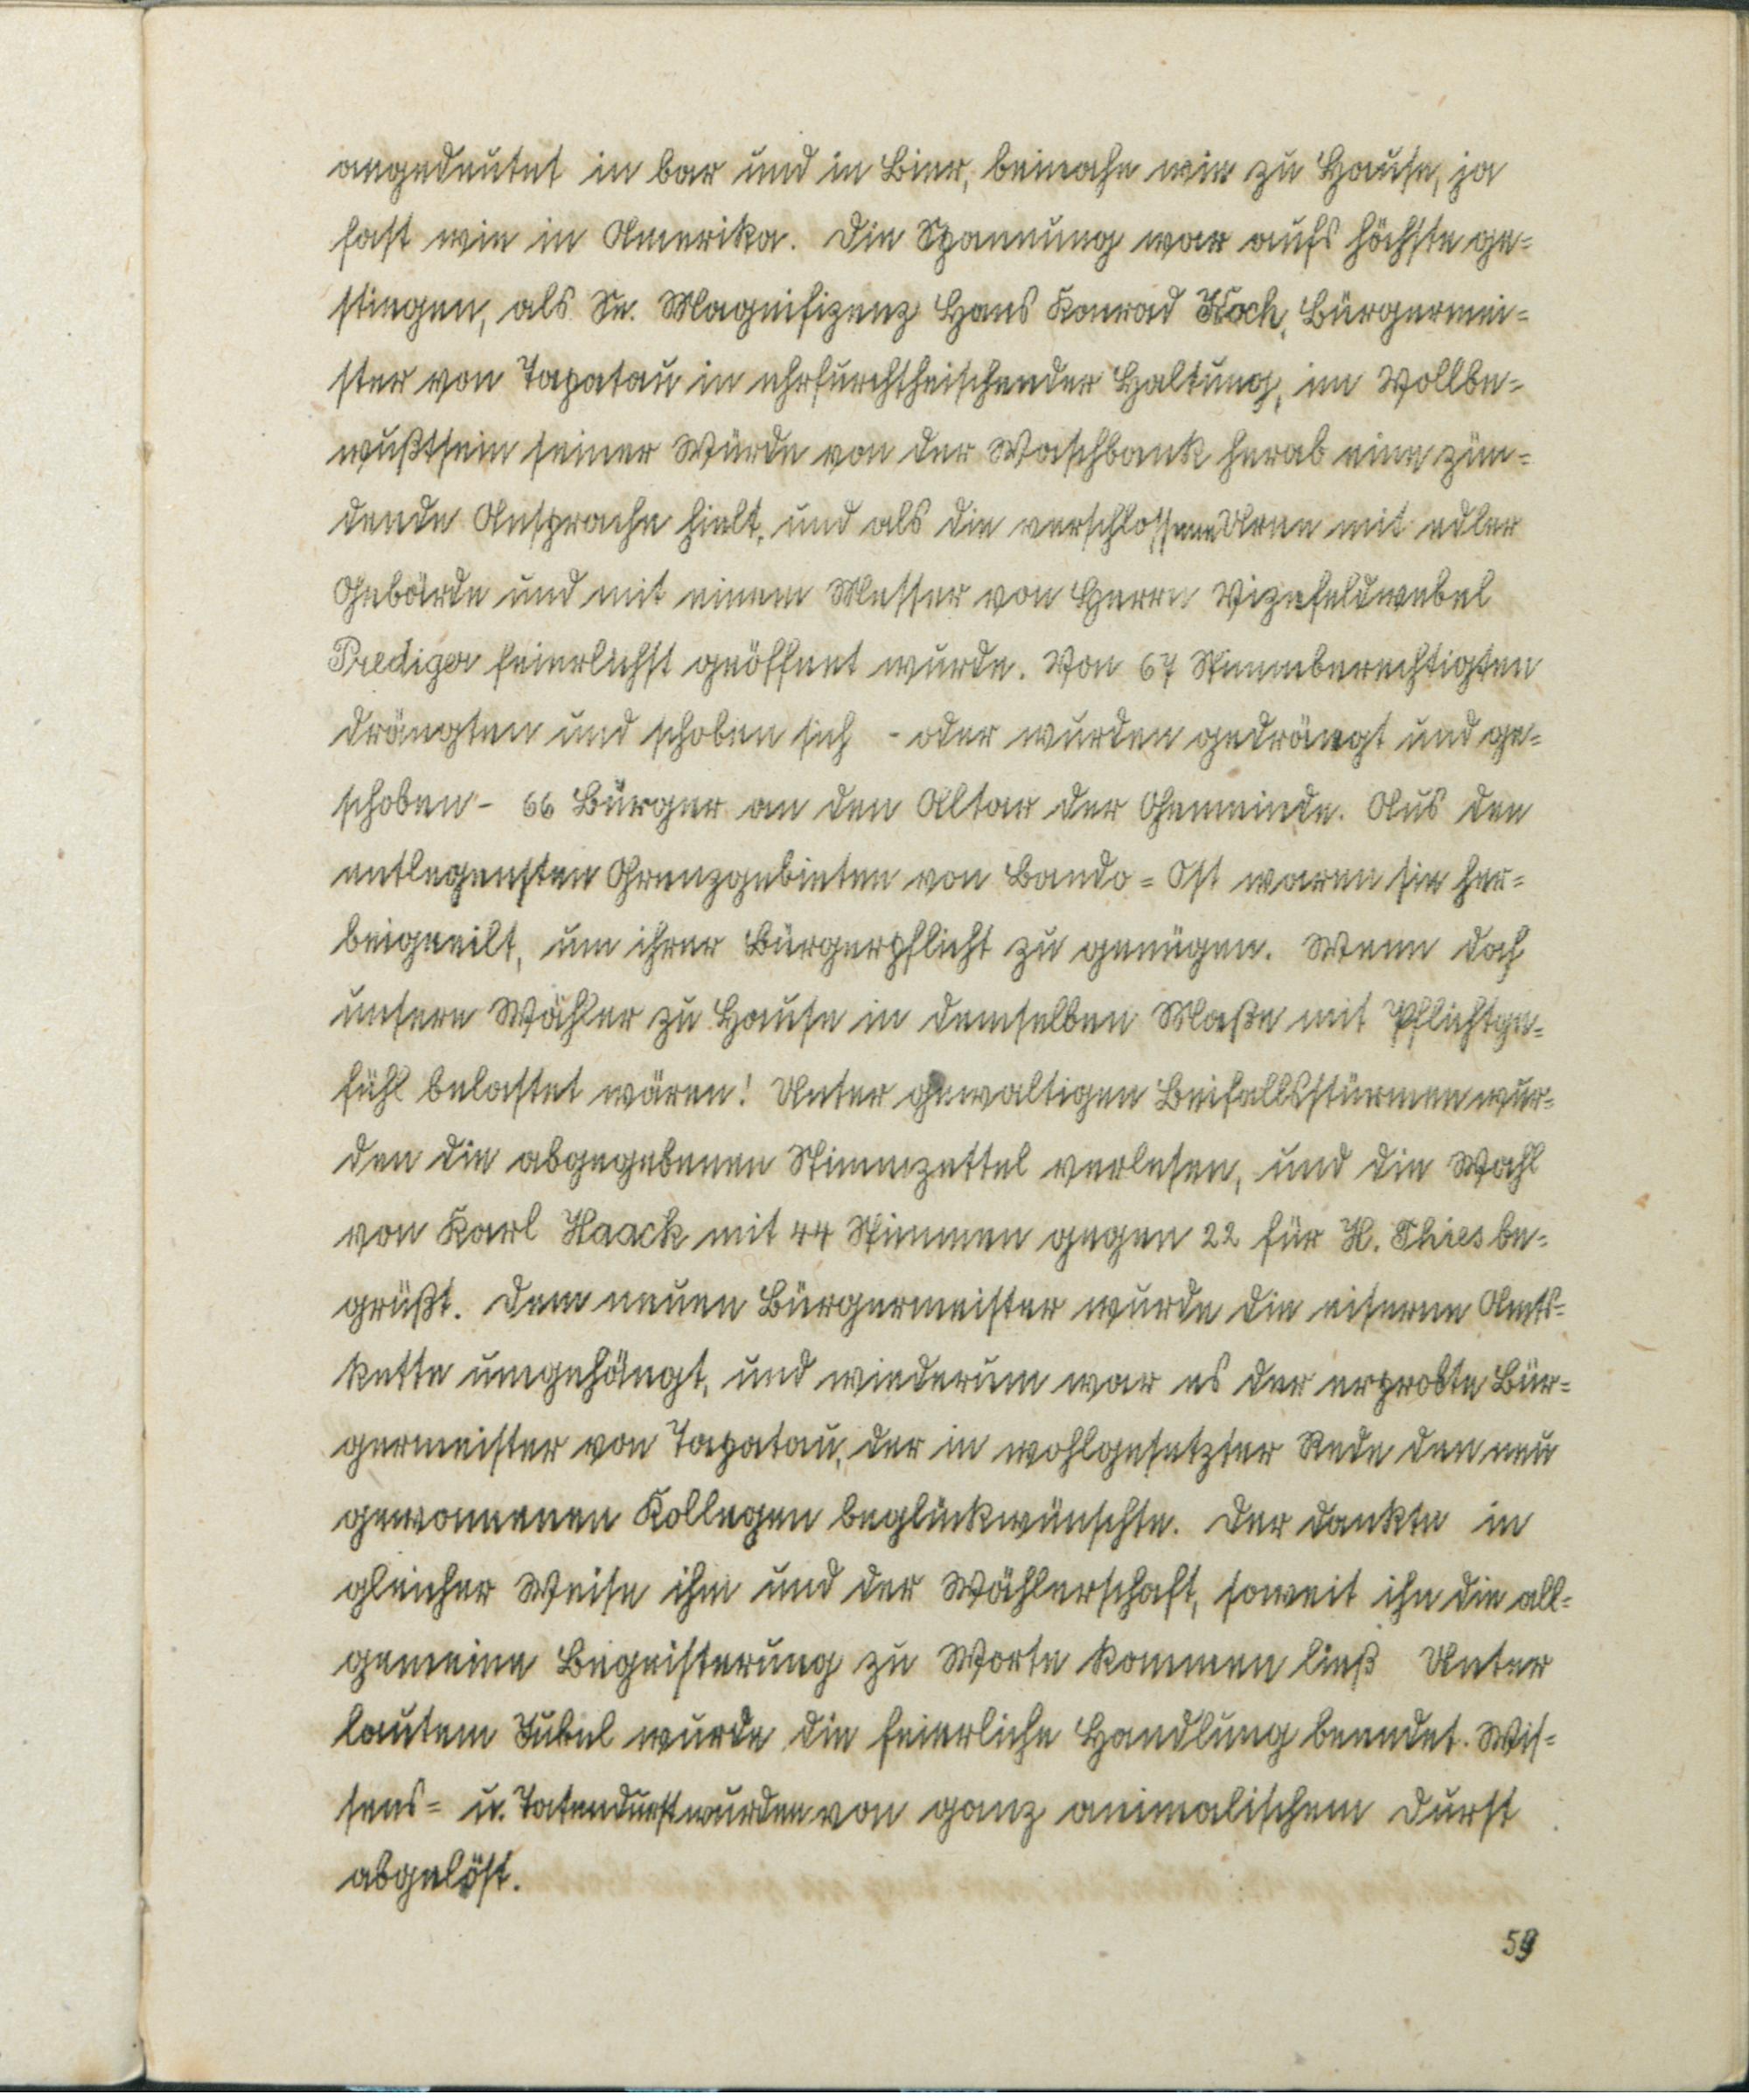 angedeutet in bar und in Bier, beinahe wie zu Hause, ja
fast wie in Amerika. Die Spannung war aufs höchste ge=
stiegen, als Se. Magnifizenz Hans Konrad Koch, Bürgermei=
ster von Tapatau in ehrfurchtheischender Haltung, im Vollbe=
wußtsein seiner Würde von der Waschbank herab eine zün=
dende Ansprache hielt, und als die verschlossene Urne mit edler
Gebärde und mit einem Messer von Herrn Vizefeldwebel
Prediger feierlichst geöffnet wurde. Von 67 Stimmberechtigten
drängten und schoben sich - oder wurden gedrängt und ge=
schoben - 66 Bürger an den Altar der Gemeinde. Aus den
entlegensten Grenzgebieten von Bando = Ost waren sie her=
beigeeilt, um ihrer Bürgerpflicht zu genügen. Wenn doch
unsere Wähler zu Hause in demselben Maße mit Pflichtge=
fühl belastet wären! Unter gewaltigen Beifallsstürmen wur=
den die abgegebenen Stimmzettel verlesen, und die Wahl
von Karl Haack mit 44 Stimmen gegen 22 für H. Thies be=
grüßt. Dem neuen Bürgermeister wurde die eiserne Amts=
kette umgehängt, und wiederum war es der erprobte Bür=
germeister von Tapatau, der in wohlgesetzter Rede den neu
gewonnenen Kollegen beglückwünschte. Der dankte in
gleicher Weise ihm und der Wählerschaft, soweit ihn die all=
gemeine Begeisterung zu Worte kommen ließ Unter
lautem Jubel wurde die feierliche Handlung beendet. Wis=
sens= u. Tatendurst wurden von ganz animalischem Durst
abgelöst.
59